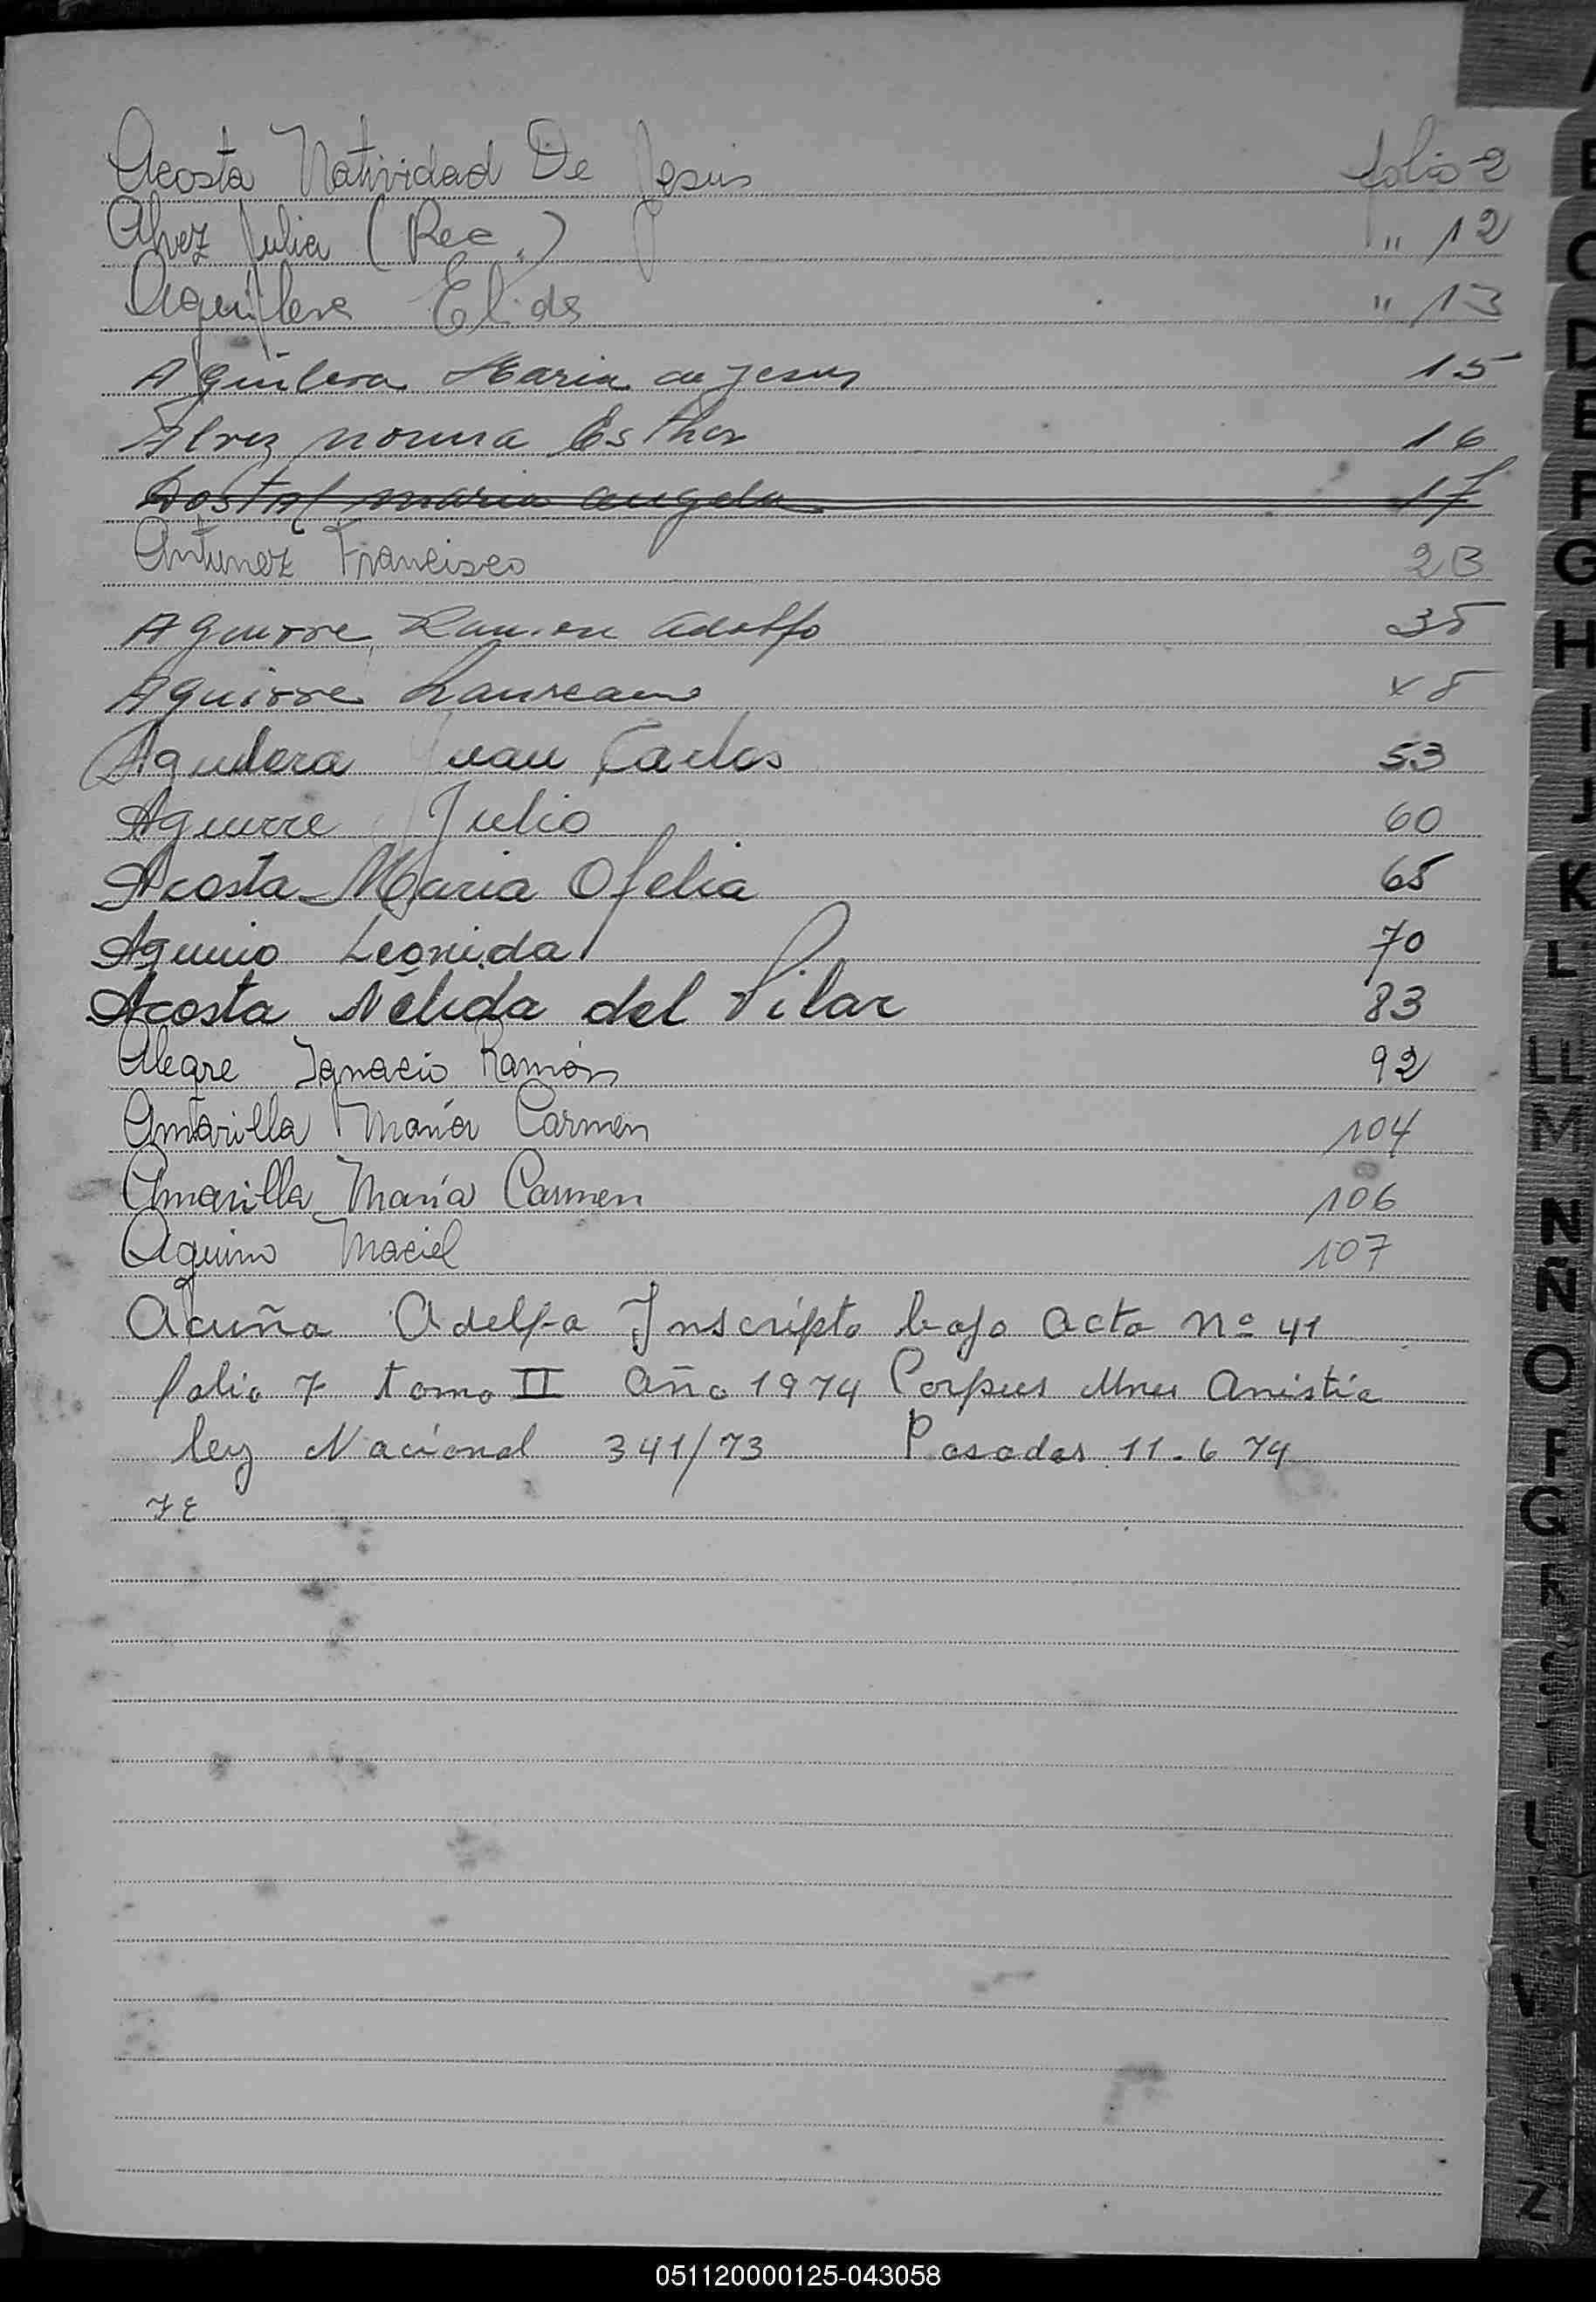 Acosta Natividad De Jesus folio-2
Alvez Julia (Rec.) " 12
Aguilera Elida " 13
Aguilera Maria de Jesus 15
Alvez Norma Esther 16
Dostal maria angela 17
Antunez Francisco 23
Aguirre Ramon Adolfo 35
Aguirre Laureano 48
Aguilera Juan Carlos 53
Aguirre Julio 60
Acosta Maria Ofelia 65
Aquino Leonida 70
Acosta Nélida del Pilar 83
Alegre Ignacio Ramón 92
Amarilla María Carmen 104
Amarilla María Carmen 106
Aquino Maciel 107
Acuña Adelfa Inscripta bajo acta nº 41
folio 7 tomo II año 1974 Corpus Mnes Anistía
ley Nacional 341/73 Posadas 11.6 74
B
C
D
E
F
G
H
I
J
K
L
LL
M
N
Ñ
O
P
Q
R
Z
051120000125-043058